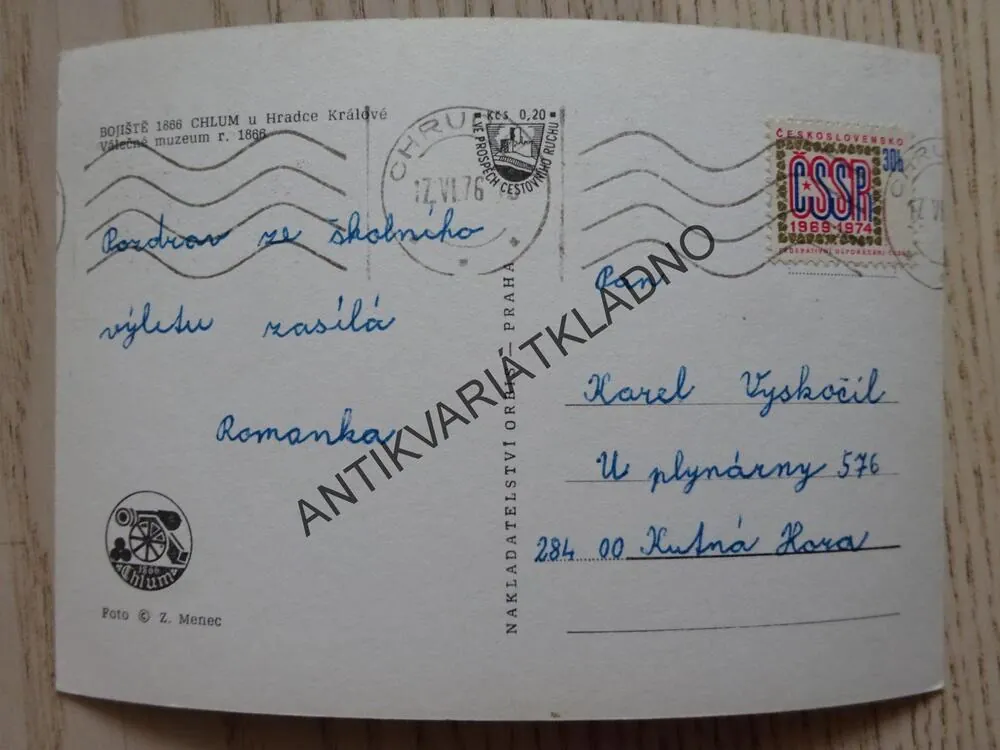 BOJIŠTĚ 1866 CHLUM u Hradce Králové
Válečné muzeum r. 1866
Kčs 0,20
VE PROSPĚCH CESTOVNÍHO RUCHU
CHRU
17.VI.76
ČESKOSLOVENSKO
30h
ČSSR
1969-1974
FEDERATIVNÍ USPOŘÁDÁNÍ ČSSR
17.VI
Pozdrav ze školního
výletu zasílá
Romanka
1866
Chlum
Foto © Z. Menec
NAKLADATELSTVÍ ORBIS — PRAHA
ANTIKVARIÁTKLADNO
Pan
Karel Vyskočil
U plynárny 576
284 00 Kutná Hora